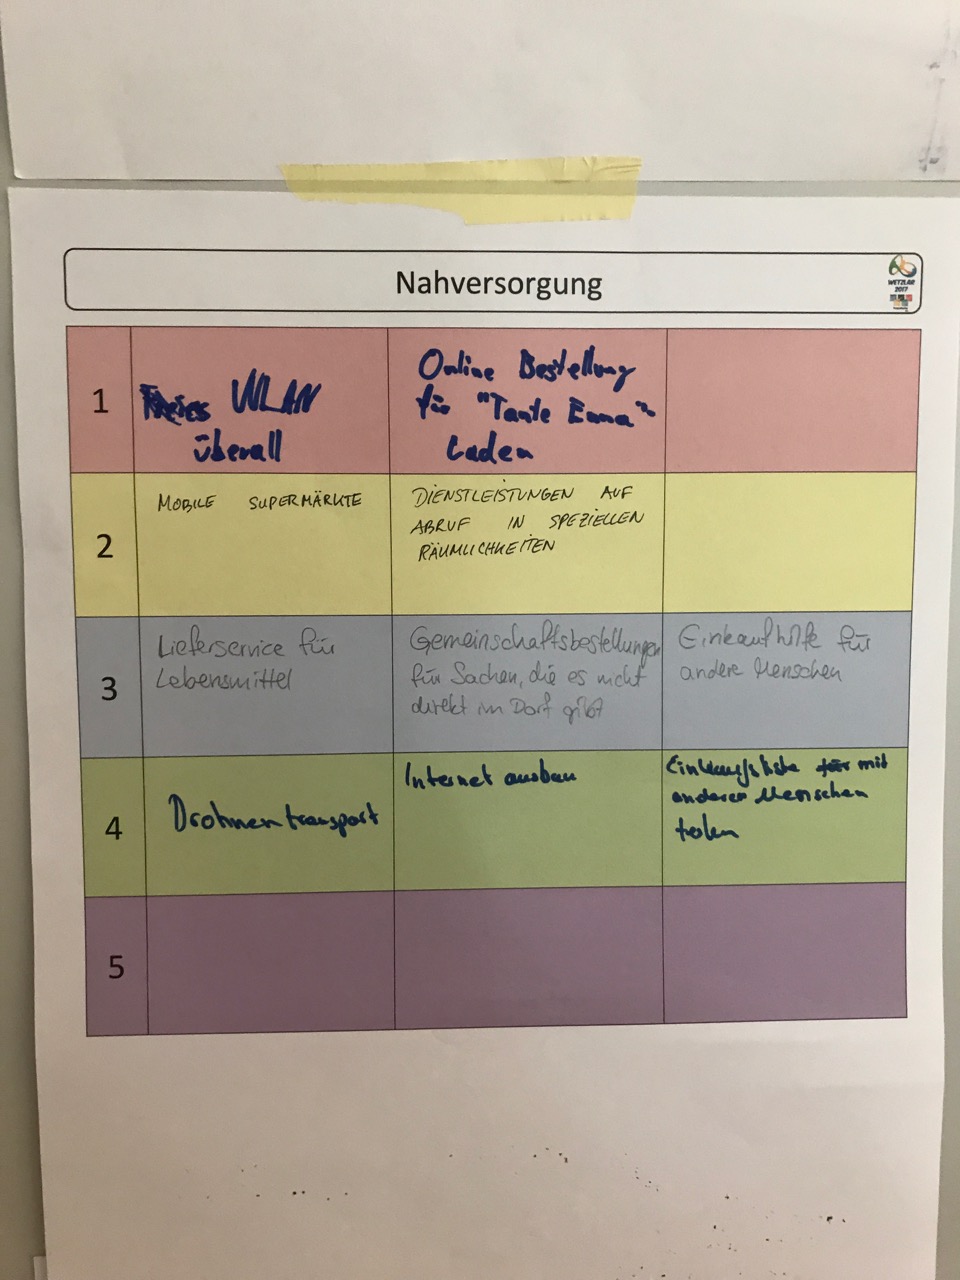 Nahversorgung
WETZLAR
2017
1
Freies WLAN
überall
Online Bestellung
für "Tante Emma"
Laden
2
MOBILE SUPERMÄRKTE
DIENSTLEISTUNGEN AUF
ABRUF IN SPEZIELLEN
RÄUMLICHKEITEN
3
Lieferservice für
Lebensmittel
Gemeinschaftsbestellungen
für Sachen, die es nicht
direkt im Dorf gibt
Einkaufhilfe für
andere Menschen
4
Drohnentransport
Internet ausbau
Einkaufsliste für mit
anderen Menschen
teilen
5